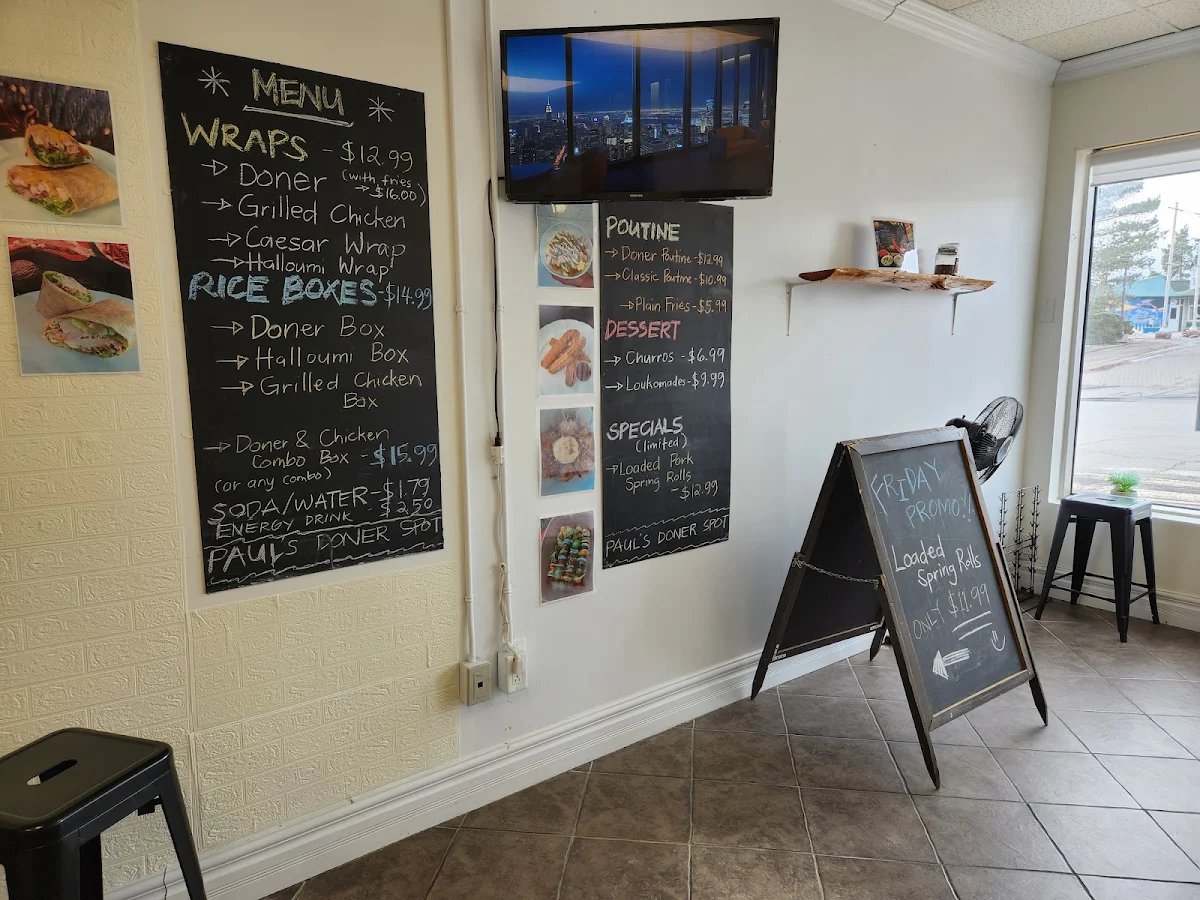 MENU
WRAPS - $12.99
→ Doner (with fries → $16.00)
→ Grilled Chicken
→ Caesar Wrap
→ Halloumi Wrap
RICE BOXES - $14.99
→ Doner Box
→ Halloumi Box
→ Grilled Chicken
Box
→ Doner & Chicken
Combo Box - $15.99
(or any combo)
SODA/WATER - $1.79
ENERGY DRINK - $2.50
PAUL'S DONER SPOT
POUTINE
→ Doner Poutine - $12.99
→ Classic Poutine - $10.99
→ Plain Fries - $5.99
DESSERT
→ Churros - $6.99
→ Loukomades - $9.99
SPECIALS
(limited)
→ Loaded Pork
Spring Rolls
- $12.99
PAUL'S DONER SPOT
FRIDAY
PROMO!!
Loaded
Spring Rolls
ONLY $11.99